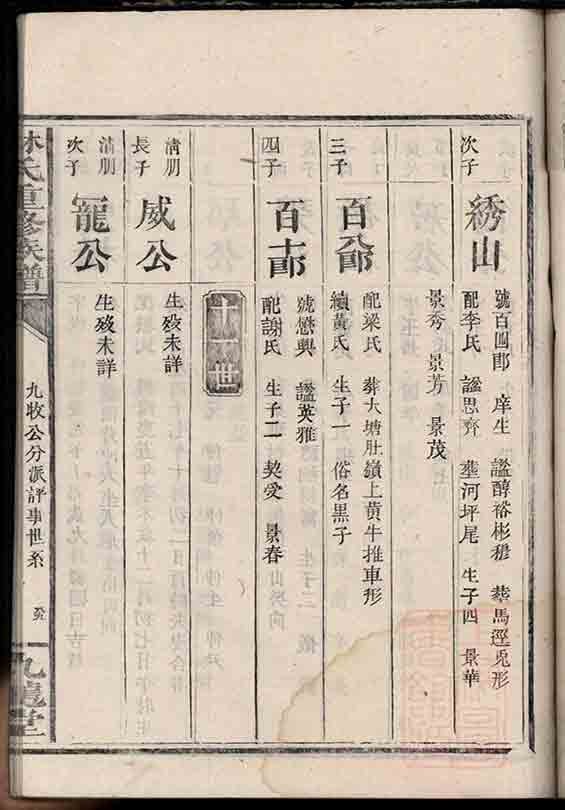 次子
綉山
號百圓郎 庠生 諡醇裕彬穆 塟馬逕兎形
配李氏 諡思齊 塟河坪尾 生子四 景華
景秀 景芳 景茂
三子
配梁氏 葬大塘肚嶺上黄牛推車形
續黃氏 生子一 俗名黑子
四子
號懋興 諡英雅
配謝氏 生子二 契受 景春
十一世
清朋
長子
威公
生歿未詳
清朋
次子
寵公
生歿未詳
林氏重修族譜
九牧公分派評事世系
九龍堂